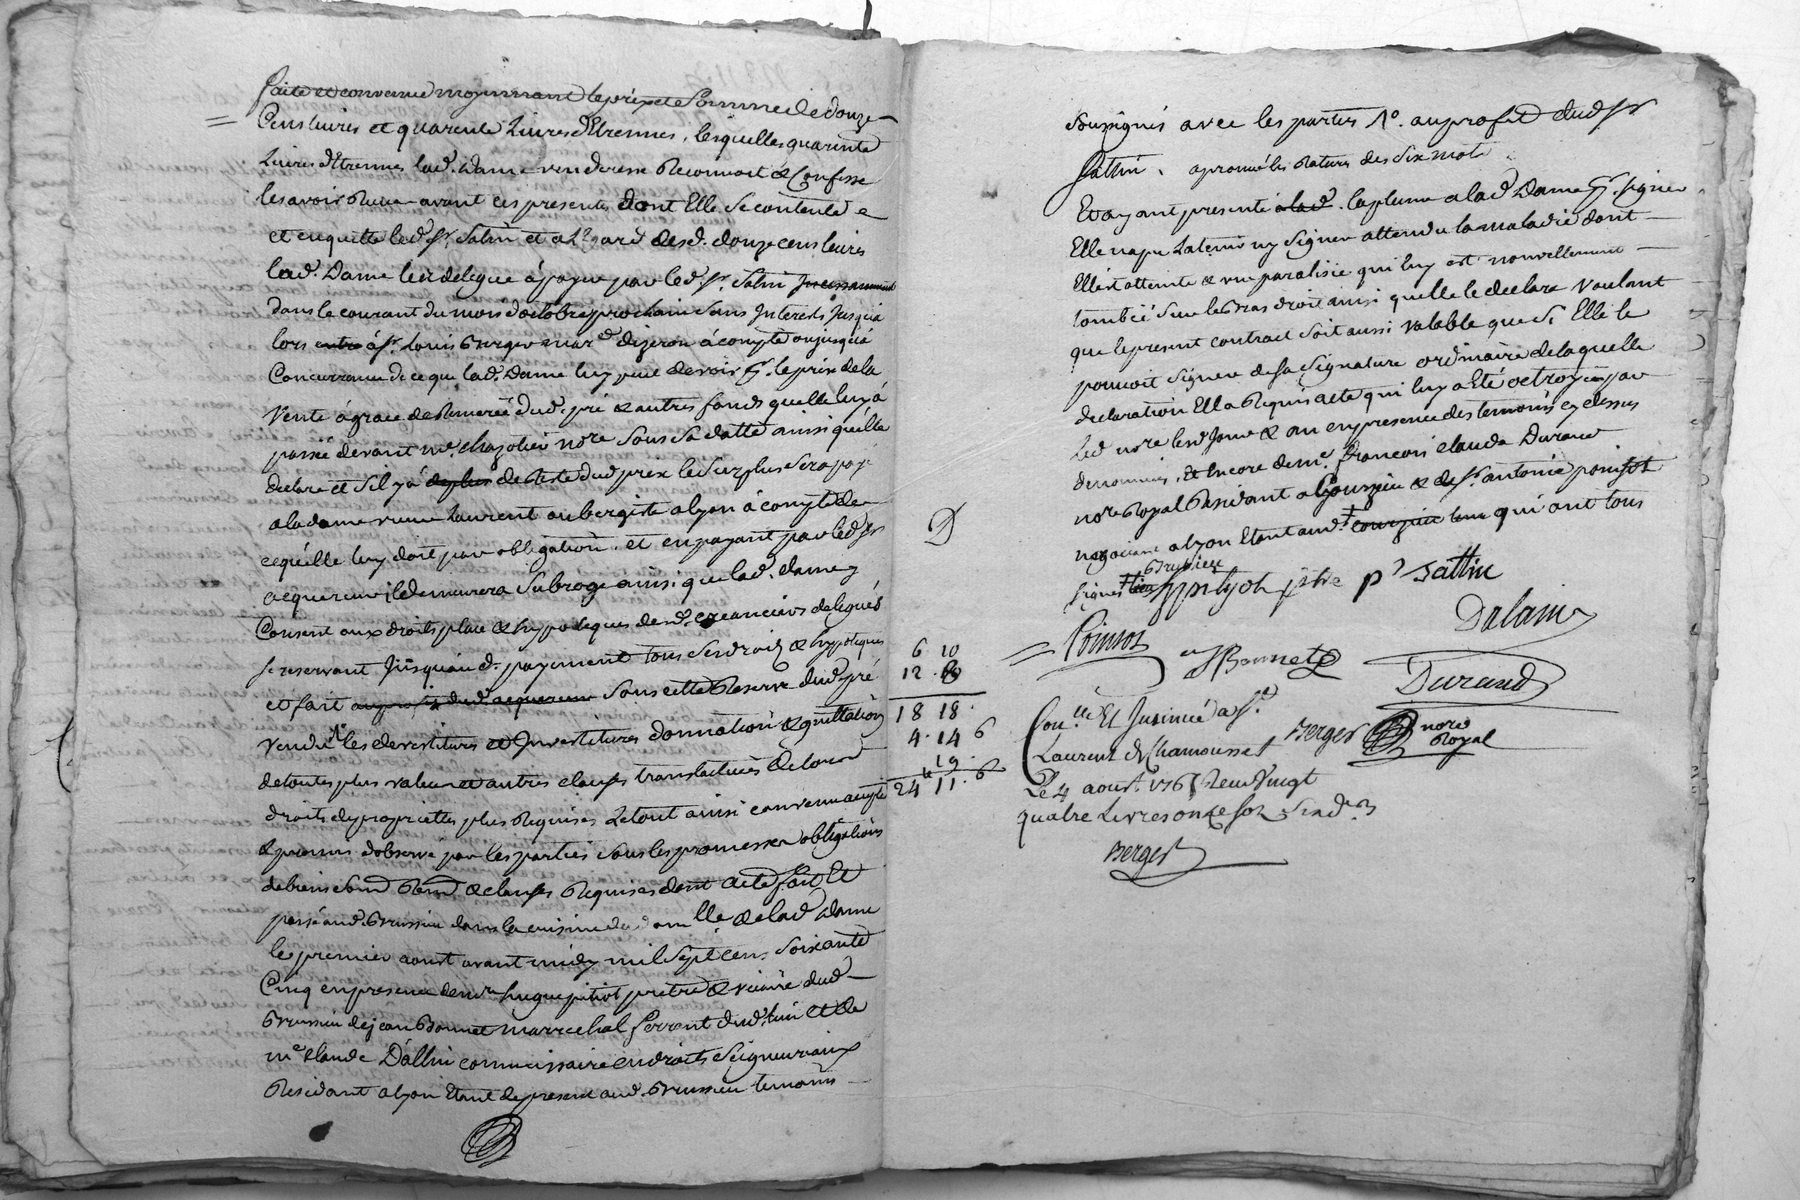 faite et convenue moyennant le prix et Somme de douze
Cens livres et quarente Livres d'Etrennes, lesquelles quarente
Livres d'Etrennes lad. Dame venderesse Reconnoit & Confesse
les avoir Receu avant ces presentes dont Elle Se contente
et en quitte led. Sr. Sattin et a l'Egard desd. douze cens livres
lad. Dame les delegue à payer par led. Sr. Sattin
dans le courant du mois d'octobre prochain Sans Interets Jusqu'a
lors à Sr. Louis Berger mard. à compte ou jusqu'à
Concurrance de ce que lad. Dame luy peut devoir pr. le prix de la
Vente à grace de Remeré dud. pré & autres fonds quelle luy à
passé devant me. Chazotier nore Sous Sa datte ainsi qu'elle
declare et S'il y à de Reste dud prix le Surplus Sera payé
a la dame veuve Laurent aubergiste a lyon à compte de
ce qu'elle luy doit par obligation, et en payant par led Sr
acquereur il demeurera Subrogé ainsi que lad. dame y
Consent aux droits place & hypoteques desd. creanciers delegués
se reservant Jusqu'au d. payement tous Ses droits & hypoteques
et fait au profit dud. acquereur Sous cette Reserve dud pré
Vendu les devestitures et Investitures donnation & quittation
de toutes plus value et autres clauses translatives de tous
droits de proprietté plus Requises Le tout ainsi convenu accepté
& promis d'observé par les parties Sous les promesses obligations
de biens & clauses Requises dont acte fait Et
passé aud. Brussieu dans la cuisine du domlle. de lad Dame
le premier aoust avant midy mil Sept cens Soixante
Cinq en presence de mre hugue pitiot pretre & vicaire dud
Brussieu de jean Bonnet marrechal ferrant dud. lieu et de
me Claude Dallin commissaire en droits Seigneuriaux
Residant a lyon Etant de present aud. Brussieu temoins
Soussignés avec les parties 1o. au profit dud Sr
Sattin, aprouvé les Ratures des Six mots
Et ayant presenté a lad. la plume a lad Dame pr. signer
Elle n'a pu La tenir ny Signer attendu la maladie dont
Elle est atteinte & une paralisie qui luy est nouvellement
tombée Sur le Bras droit ainsi quelle le declare voulant
que le present contract Soit aussi valable que Si Elle le
pouvoit Signer de Sa Signature ordinaire de laquelle
declaration Ell a Requis acte qui luy a Eté octroyé par
Led nore lesd Jour & an en presence des temoins cy dessus
denommés, et Encore de me. francois claude Durand
nore Royal Residant a & de Sr. antoine poinsot
negociant a lyon Etant aud. qui ont tous
Brussieu
Signés pitiot ptre
p. Sattin
D
Dalain
Poinsot
J Bonnet
Durand
6 10
12
18 18
4. 14 6
19
24 11. 6
Con.lle Et Insinué a St.
Laurent de Chamousset
Le 4 aoust 1765 Receu Vingt
quatre Livres onze Sol Six d.
Berger
nore
Royal
Berger